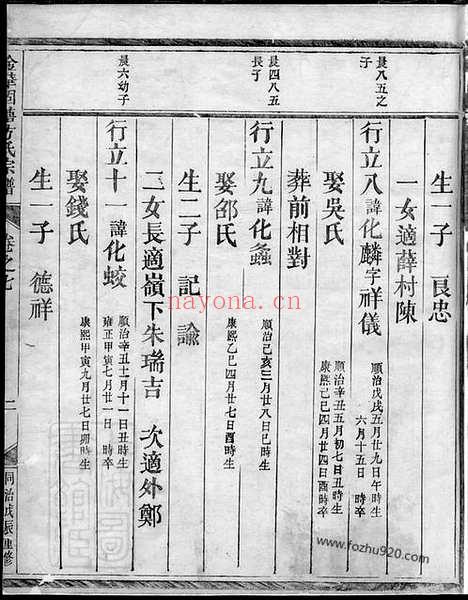 晨八五之子
晨四八五長子
晨六幼子
生一子 良忠
一女適薛村陳
行立八諱化麟字祥儀 順治戊戌五月廿九日午時生
六月十五日 時卒
娶吳氏 順治辛丑五月初七日丑時生
康熙己巳四月廿四日酉時卒
葬前相對
行立九諱化螽 順治己亥三月廿八日巳時生
娶邵氏 康熙乙巳四月廿七日酉時生
生二子 記 諭
二女長適嶺下朱瑞吉 次適外鄭
行立十一諱化蛟 順治辛丑十一月十一日丑時生
雍正甲寅七月廿一日 時卒
娶錢氏 康熙甲寅九月廿七日卯時生
生一子 德祥
卷之七
二
nayona.cn
www.fozhu920.com